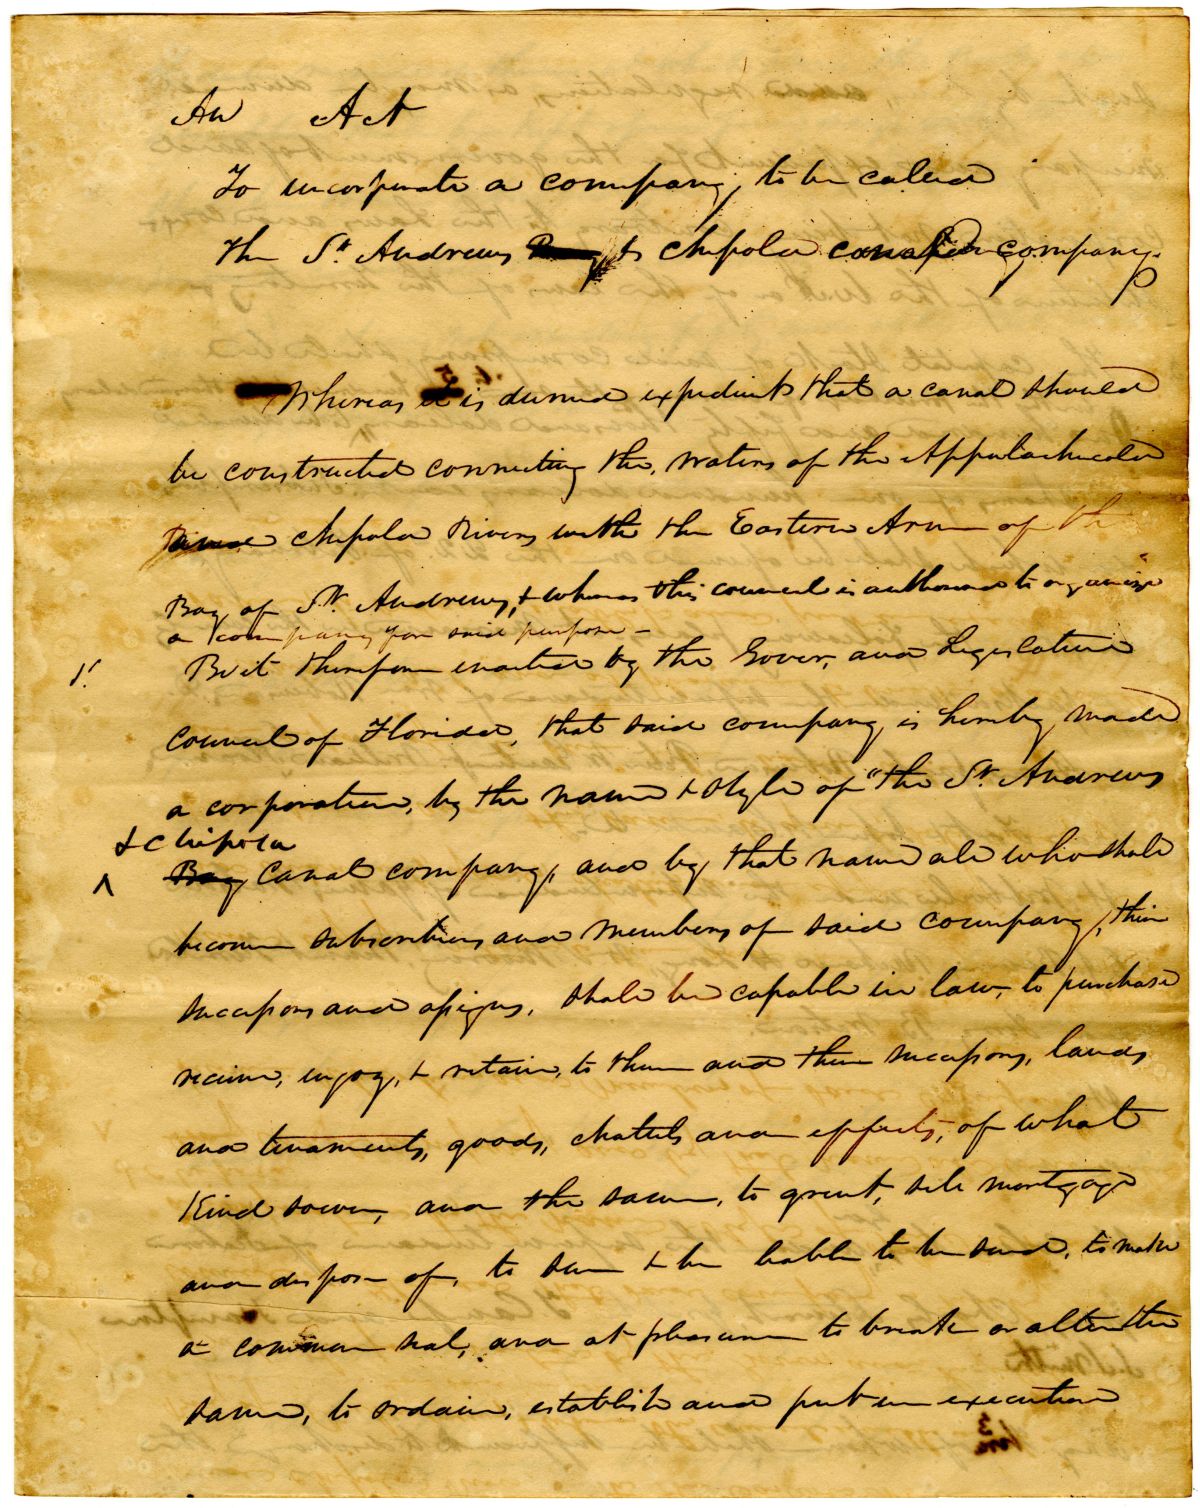 An Act
To incorporate a company, to be called
the St. Andrews Bay & Chipola canal company.
Whereas it is deemed expedient that a canal should
be constructed connecting the waters of the Appalachicola
and Chipola Rivers with the Eastern Arm of the
Bay of St. Andrews, & whereas this council is authorised to organize
a company for said purpose –
1. Be it therefore enacted by the Gover, and Legislative
council of Florida, that said company, is hereby made
a corporation, by the name & style of "the St. Andrews
& Chipola
Bay Canal company, and by that name all who shall
become subscribers and members of said company, their
successors and assigns, shall be capable in law, to purchase
receive, enjoy, & retain, to them and their successors, lands
and tenaments, goods, chatels and effects, of what
Kind soever, and the same, to grant, sell mortgage
and dispose of, to sue & be liable to be sued, to make
a common seal, and at pleasure to break or alter the
same, to ordain, establish and put in execution